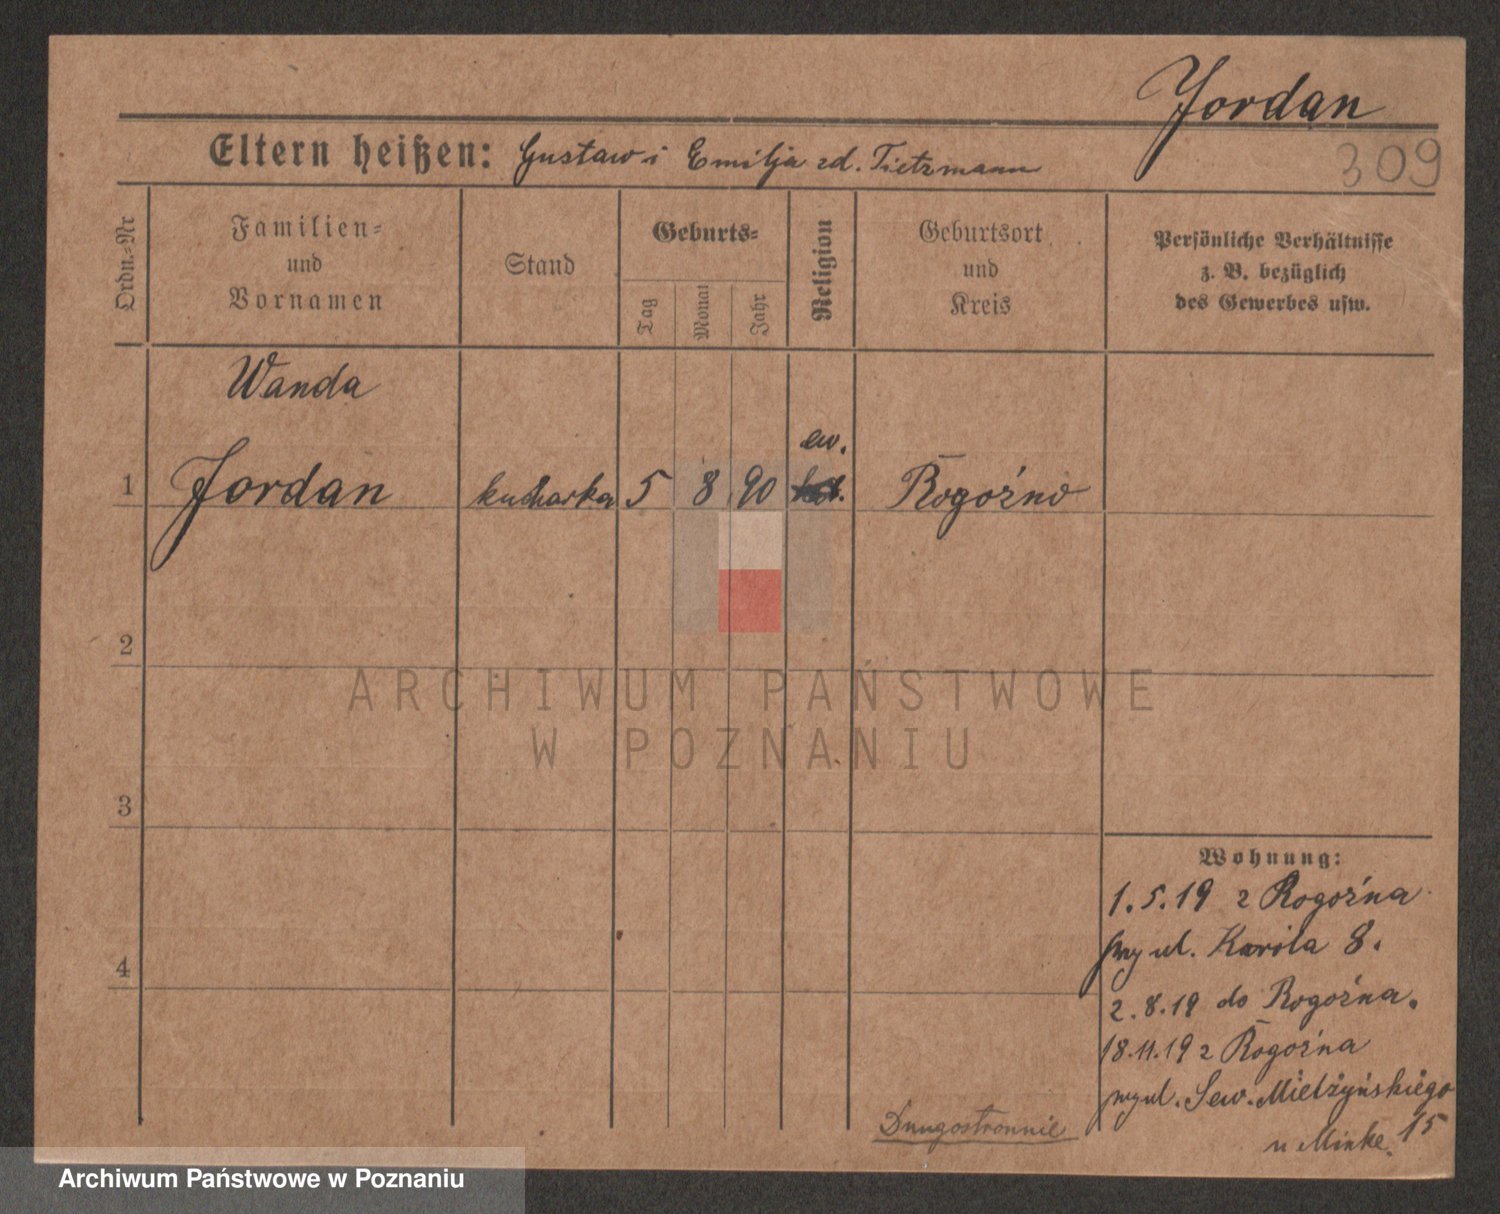 Jordan
309
Eltern heißen: Gustaw i Emilja zd. Tietzmann
Ordn.-Nr
Familien-
und
Vornamen
Stand
Geburts-
Tag
Monat
Jahr
Religion
Geburtsort
und
Kreis
Persönliche Verhältnisse
z. B. bezüglich
des Gewerbes usw.
Wanda
ew.
1 Jordan kucharka 5 8 90 Rogoźno
2
3
4
ARCHIWUM PAŃSTWOWE
W POZNANIU
Wohnung:
1.5.19 z Rogoźna
przy ul. Karola 8.
2.8.19 do Rogoźna.
18.11.19 z Rogoźna
przy ul. Sew. Mielżyńskiego
15
u Minke.
Drugostronnie
Archiwum Państwowe w Poznaniu